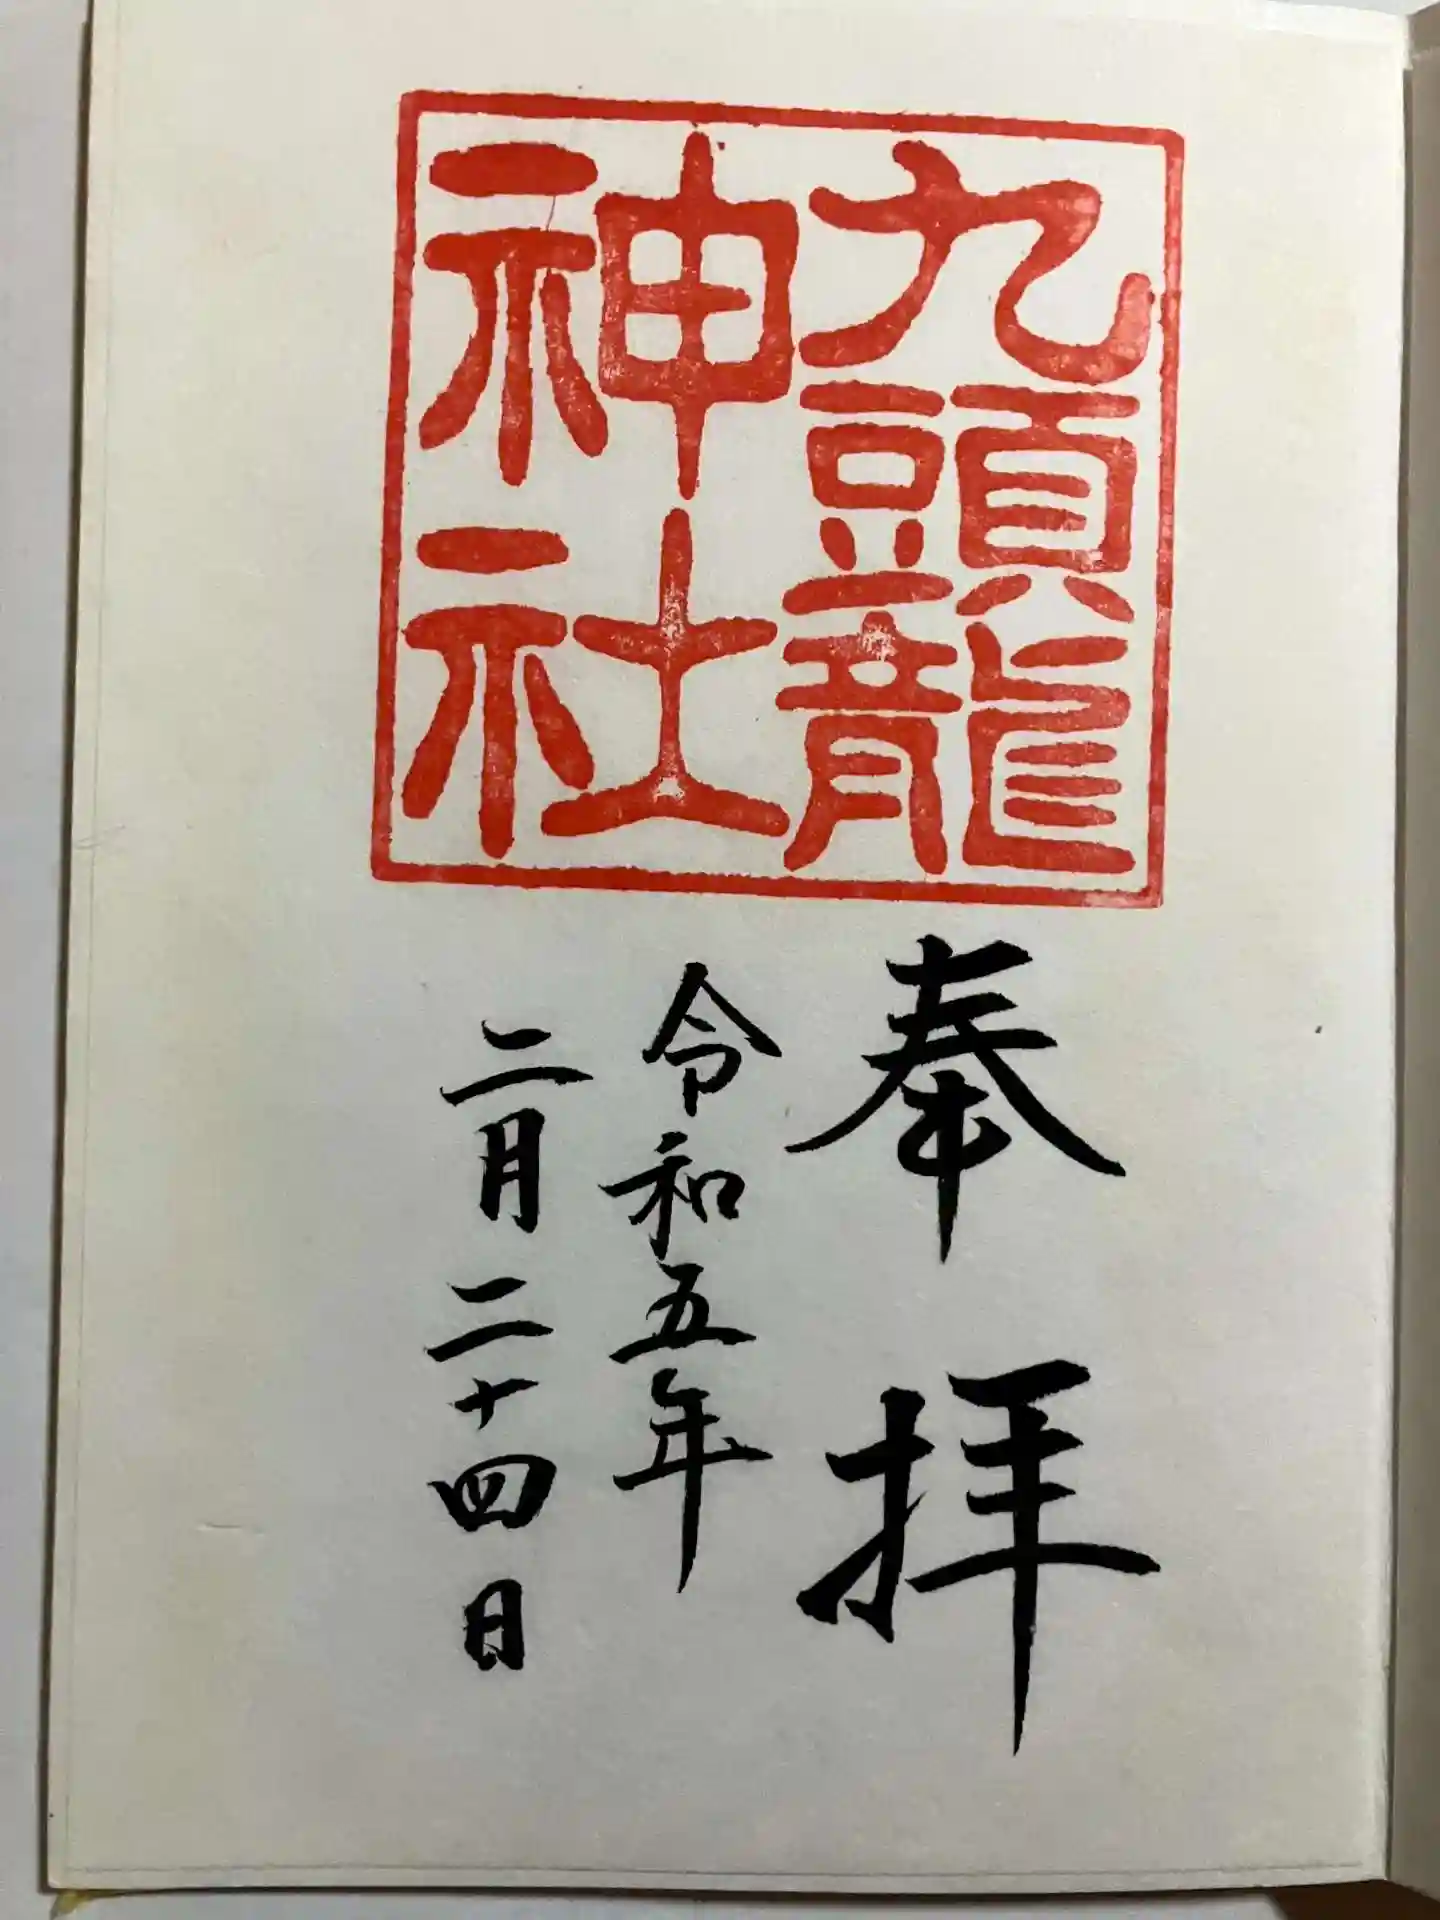 九頭龍
神社
奉拝
令和五年
二月二十四日